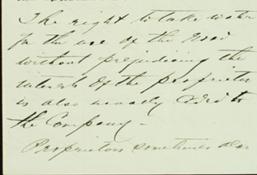 The right to take water
for the use of the Road
without prejudicing the
interests of the proprietor
is also usually ceded to
the Company –
Proprietors sometimes also